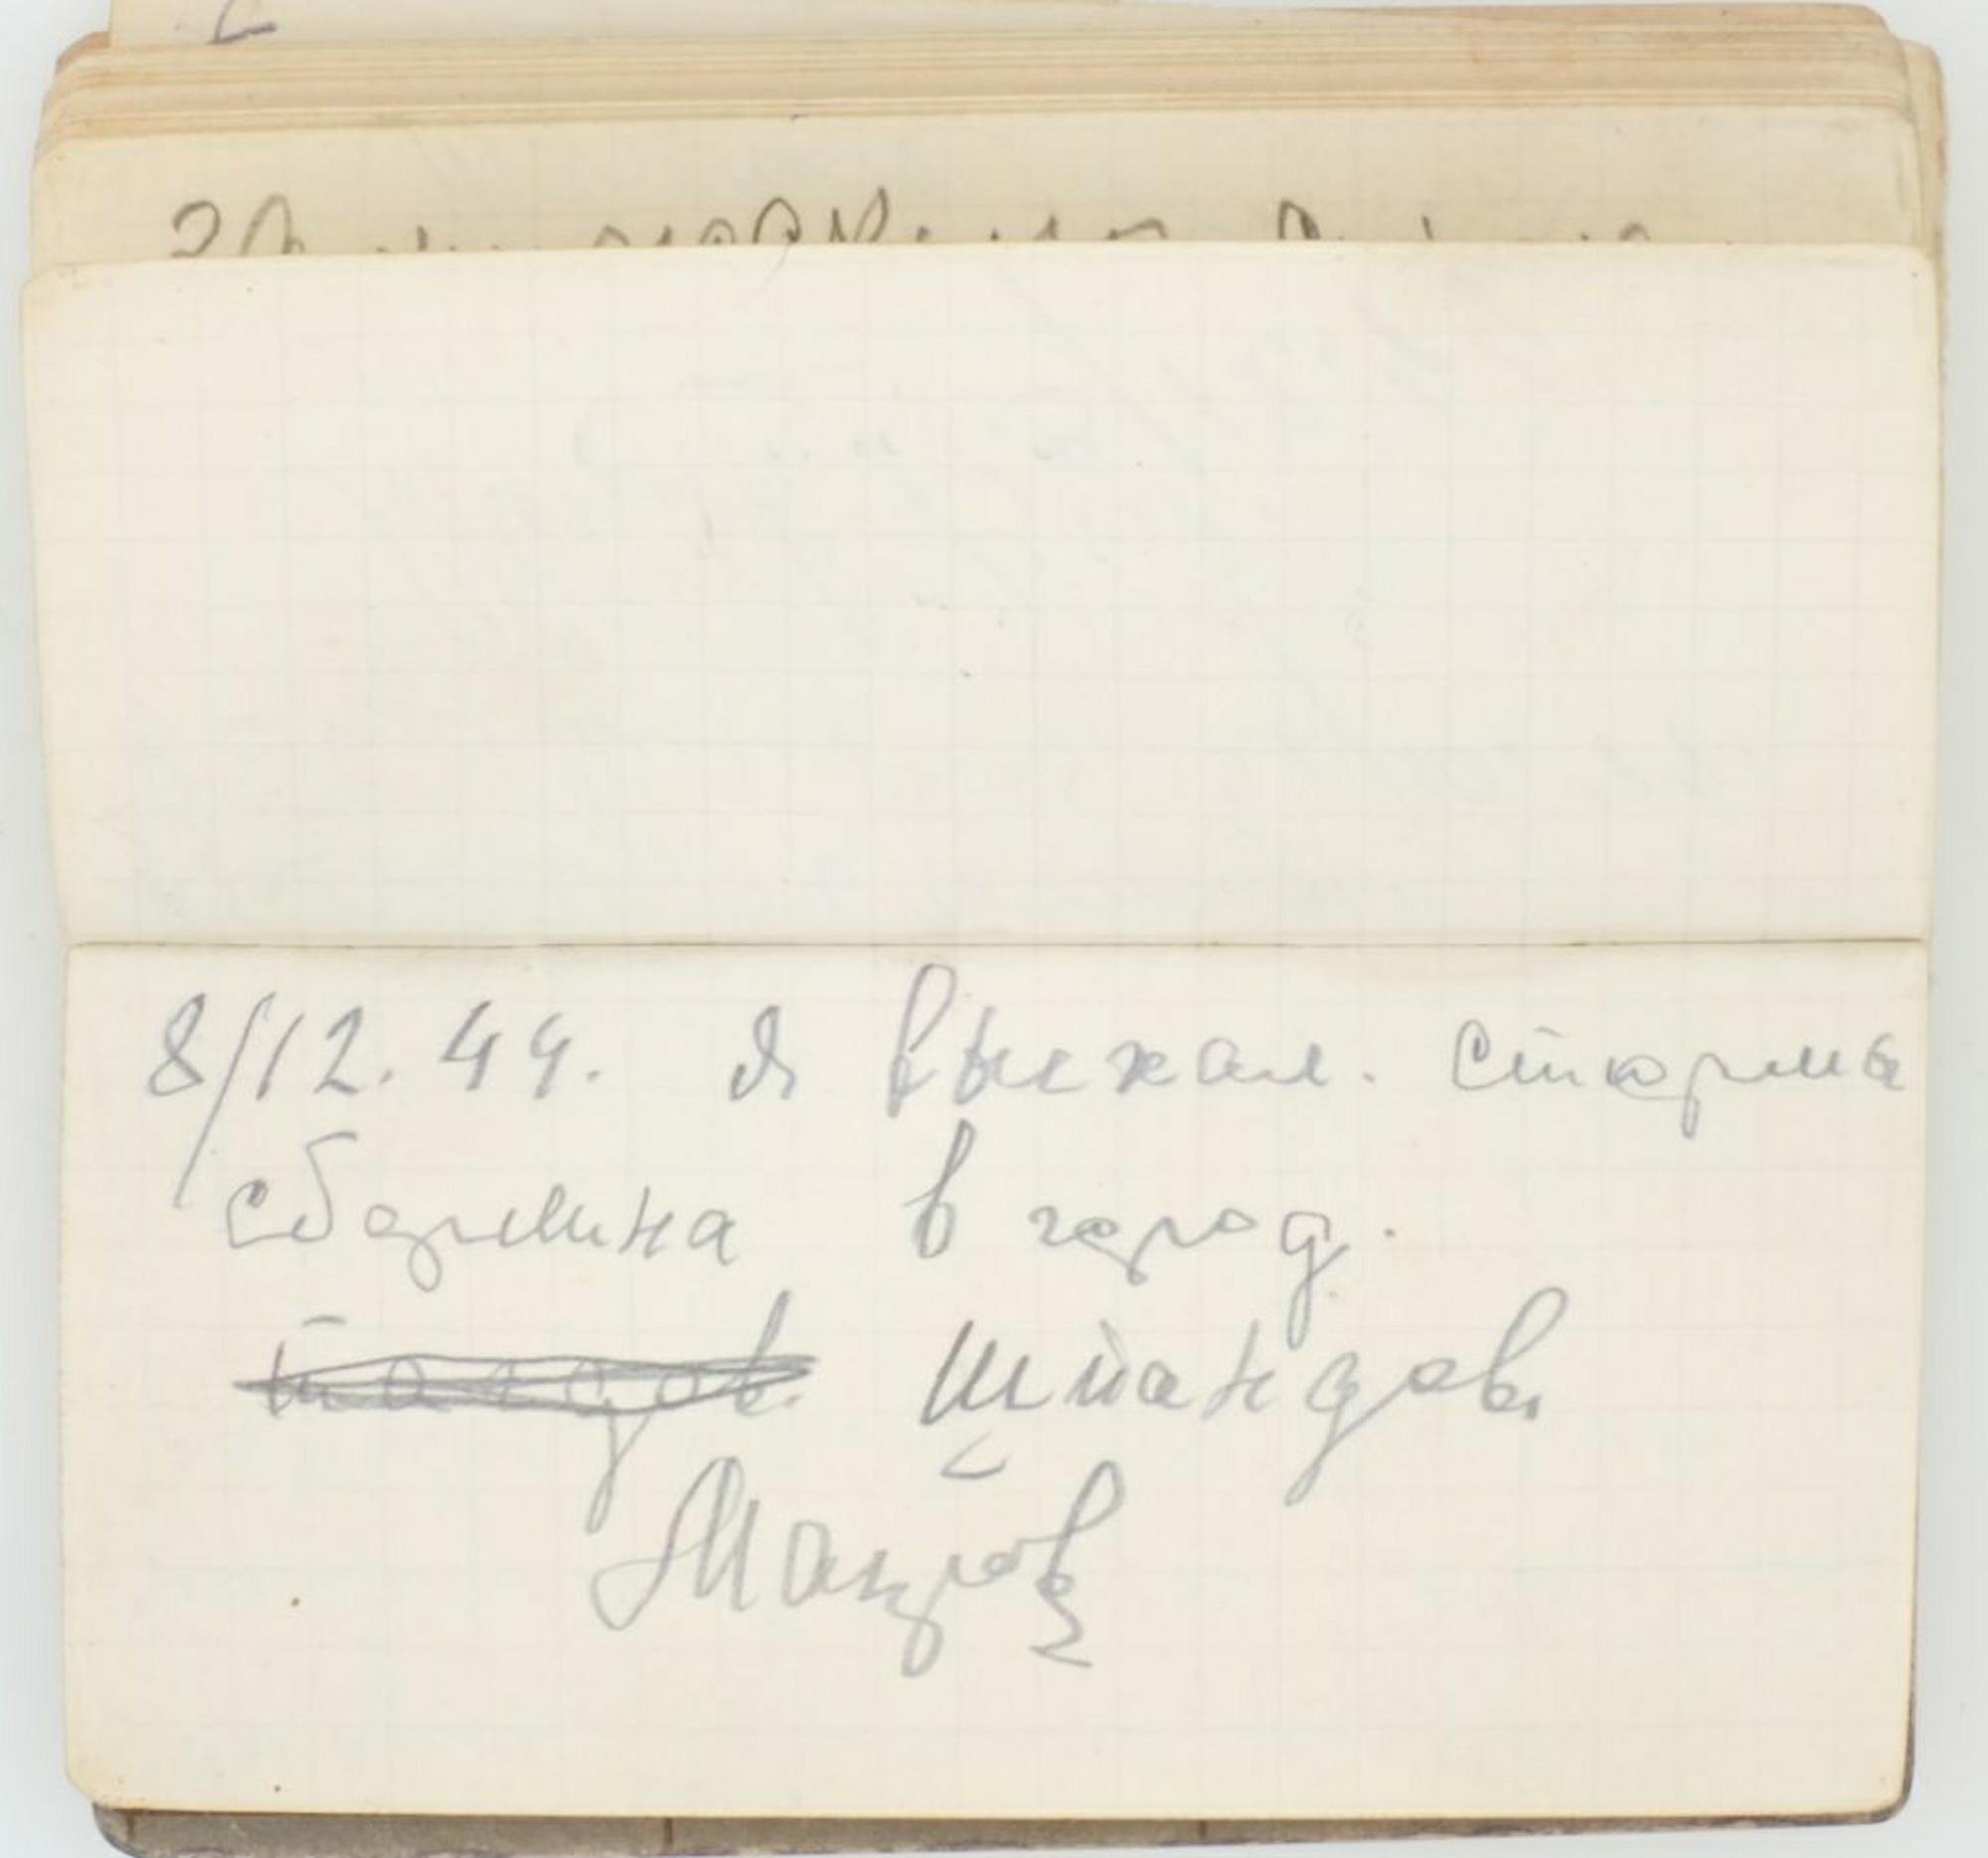 8/12.44. я выехал. стюрма
сбарлина в город.
шпандов.